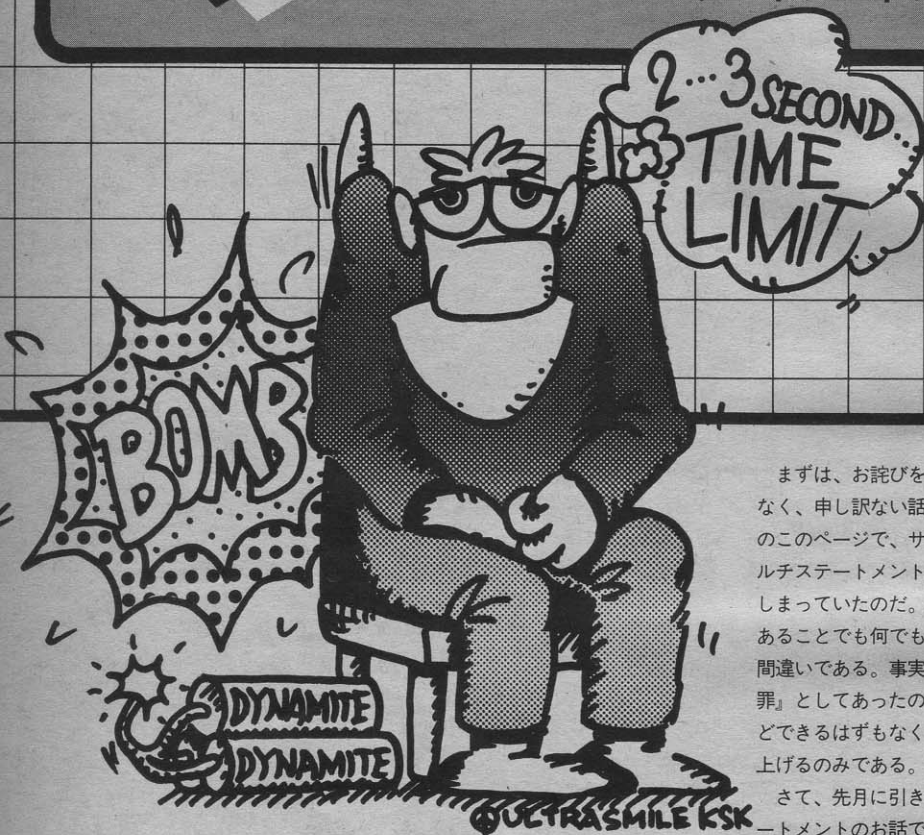 2…3 SECOND.
TIME
LIMIT
BOMB
DYNAMITE
DYNAMITE
ULTRASMILE KSK
まずは、お詫びを
なく、申し訳ない話
のこのページで、サ
ルチステートメント
しまっていたのだ。
あることでも何でも
間違いである。事実
罪』としてあったの
どできるはずもなく
上げるのみである。
さて、先月に引き
ートメントのお話で